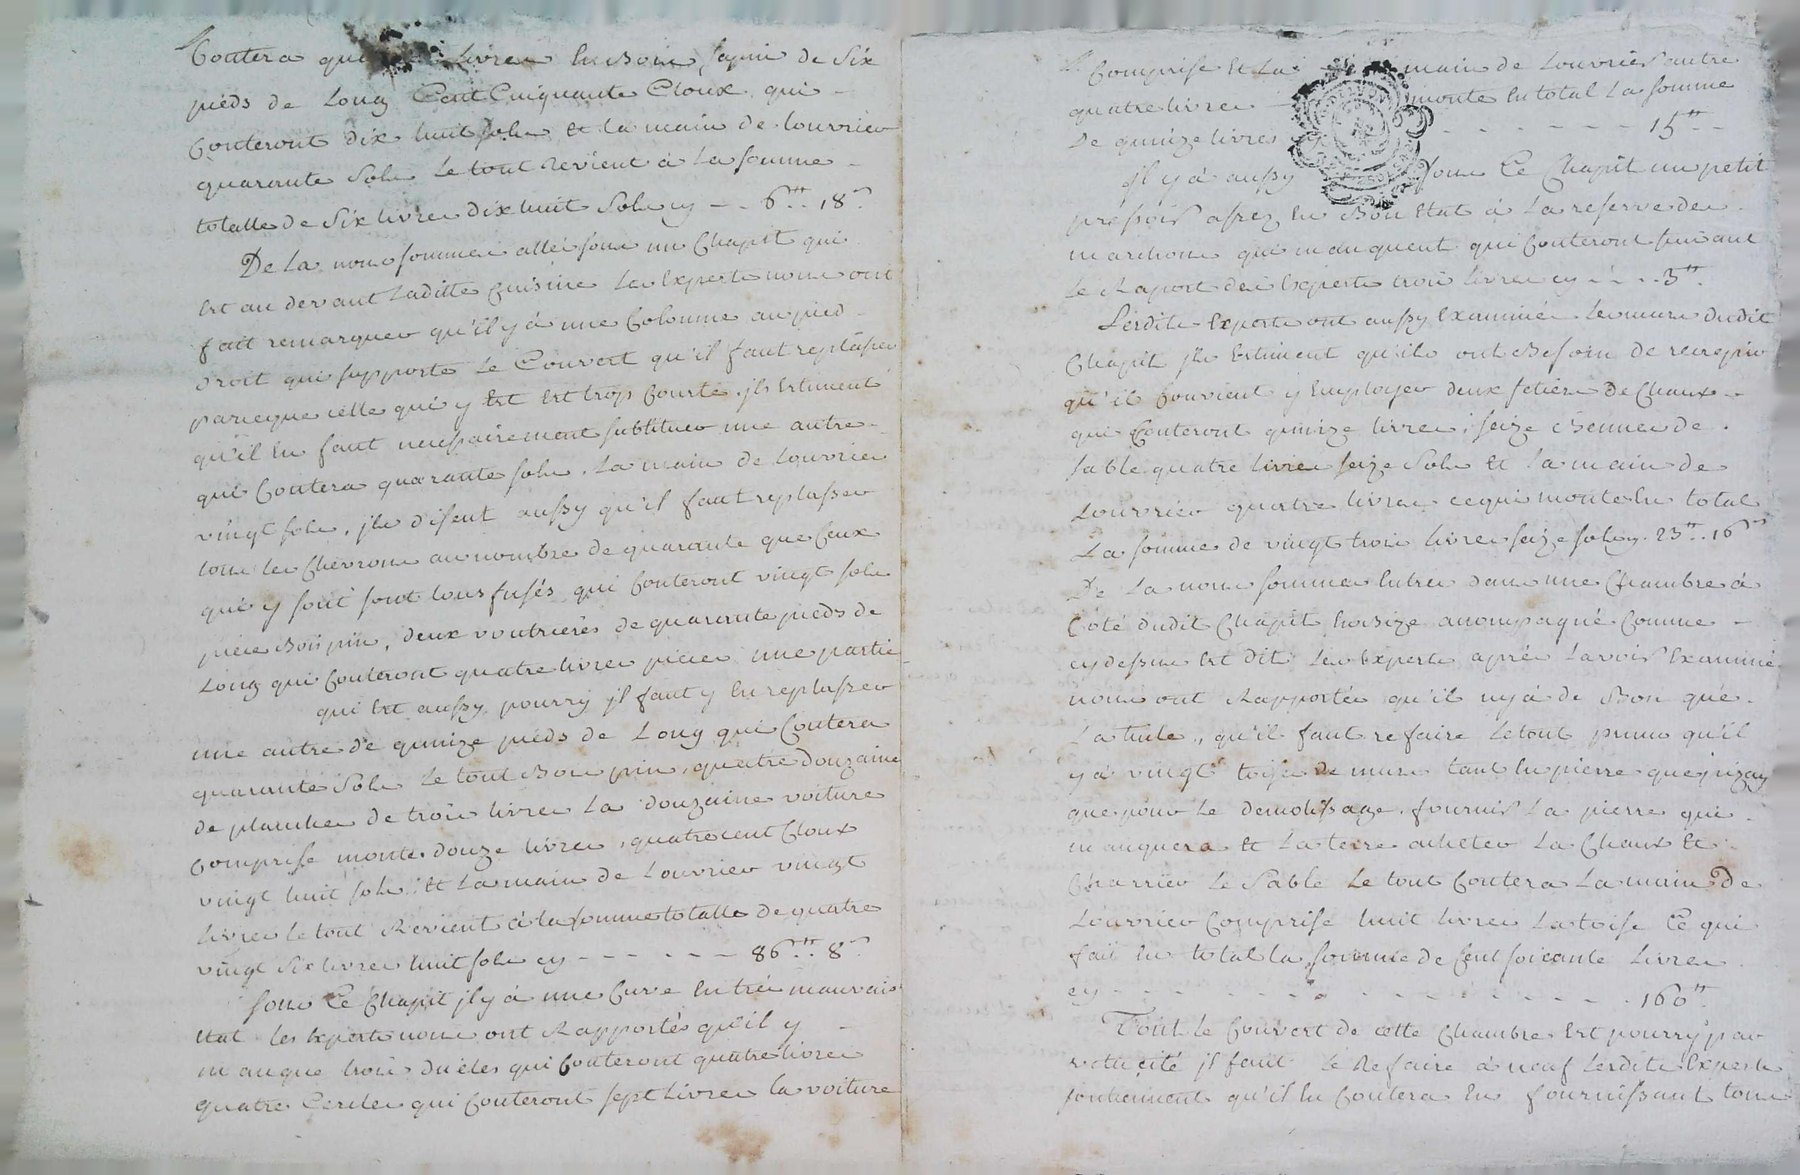 Coutera quatre livres en Bois sapin de Six
pieds de Long Cent Cinquante Cloux qui
Couteront dix huit sols et la main de louvrier
quarante Sols Le tout revient à La somme
totalle de Six livres dix huit Sols cy - - 6tt.. 18s
De La nous sommes allés sous un Chapit qui
Est au devant Laditte Cuisine Les Experts nous ont
fait remarquer qu'il y à une Colomne au pied
droit qui supporte Le Couvert qu'il faut replasser
parceque celle qui y Est Est trop Courte, jls Estiment
qu'il En faut necessairement subtituer une autre
qui Coutera quarante sols, La main de Louvrier
vingt sols, jls disent aussy qu'il faut replasser
tous les Chevrons au nombre de quarante que Ceux
qui y sont sont tous fusés qui Couteront vingt sols
piece Bon pin, deux voutrieres de quarante pieds de
Long qui Couteront quatre livres pieces une partie
qui Est aussy pourry jl faut y En replasser
une autre de quinze pieds de Long qui Coutera
quarante Sols Le tout Bon pin, quatre Douzaine
de planches de trois livres La douzaine voiture
Comprise monte douze livres, quatre cent Cloux
vingt huit sols, Et La main de Louvrier vingt
Livres le tout Revient à la somme totalle de quatre
vingt Six livres huit sols cy - - - - - - 86tt.. 8s
sous Ce Chapit jl y à une Cuve En très mauvais
Etat les Experts nous ont Rapportés qu'il y
manque trois Dueles qui Couteront quatre livres
quatre Cercles qui Couteront sept Livres la voiture
Comprise Et La main de Louvrier autre
quatre livres monte En total La somme
De quinze livres - - - - - - 15tt
jl y à aussy sous Ce Chapit un petit
pressoir assez En Bon Etat à La reserve des
marchons qui manquent qui Couteront suivant
Le Raport des Experts trois Livres cy - - - 3tt
Lesdits Experts ont aussy Examinés Les murs dudit
Chapit jls Estiment qu'ils ont Besoin de recrepir
qu'il Convient y Employer deux setiers De Chaux
qui Couteront quinze livres, seize Bennes de
sable quatre livres seize Sols Et La main de
Louvrier quatre livres ce qui monte En total
La somme de vingt trois livres seize sols cy. 23tt.. 16s
De La nous sommes Entrés dans une Chambre à
Côté dudit Chapit accompagné Comme
cy dessus Est dit Les Experts après Lavoir Examiné
nous ont Rapportés qu'il ny à de Bon que
La tuile, qu'il faut refaire Le tout primo qu'il
y à vingt toises de murs tant En pierre que pizay
que pour Le demolissage, fournir La pierre qui
manquera Et La terre acheter La Chaux Et
Charrier Le Sable Le tout Coutera La main De
Louvrier Comprise huit livres La toise Ce qui
fait En total la somme de Cent soixante Livres
cy - - - - - - - - - - - - 160tt
Tout le Couvert de cette Chambre Est pourry par
vetucité jl faut Le Refaire à neuf Lesdits Experts
soutiennent qu'il En Coutera En fournissant tous